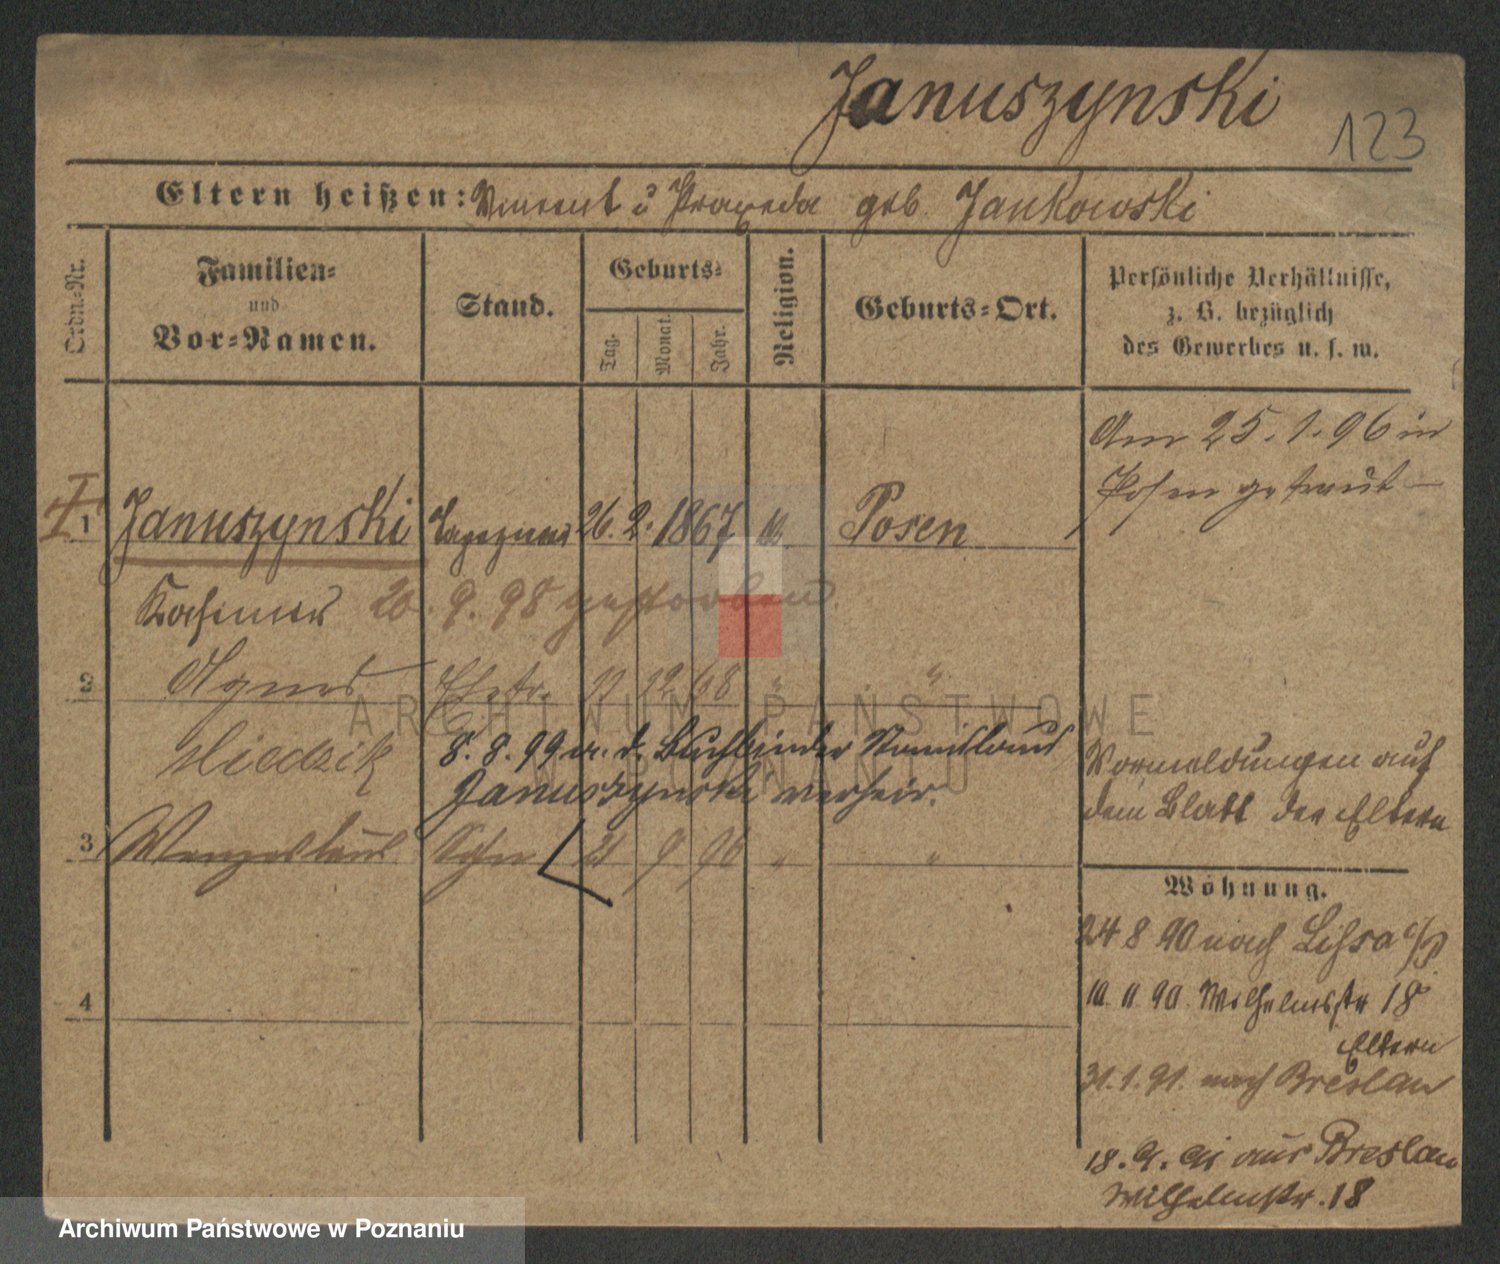 Januszynski
123
Eltern heißen: Vincent u Praxeda geb. Jankowski
Ordn.-Nr.
Familien-
und
Vor-Namen.
Stand.
Geburts-
Tag.
Monat.
Jahr.
Religion.
Geburts-Ort.
Persönliche Verhältnisse,
z. B. bezüglich
des Gewerbes u. s. w.
Am 25.1.96 in
Posen getraut
I
1 Januszynski 26. 2. 1867 Posen
Kasimir 20. 9. 98 gestorben
2 Agnes Ehefr. 12 68 "
Miedzik 8. 8. 99 m. d. Buchbinder Stanislaus
Januszynski verheir.
3 Wenzeslaus Sohn 21 9 96 " "
4
Vormeldungen auf
dem Blatt der Eltern
Wohnung.
24 8 90 nach Lissa i/P
10. 11 90. Wilhelmstr 18
Eltern
31.1.91. nach Breslau
18. 9. 91 aus Breslau
Wilhelmstr. 18
ARCHIWUM PAŃSTWOWE
W POZNANIU
Archiwum Państwowe w Poznaniu